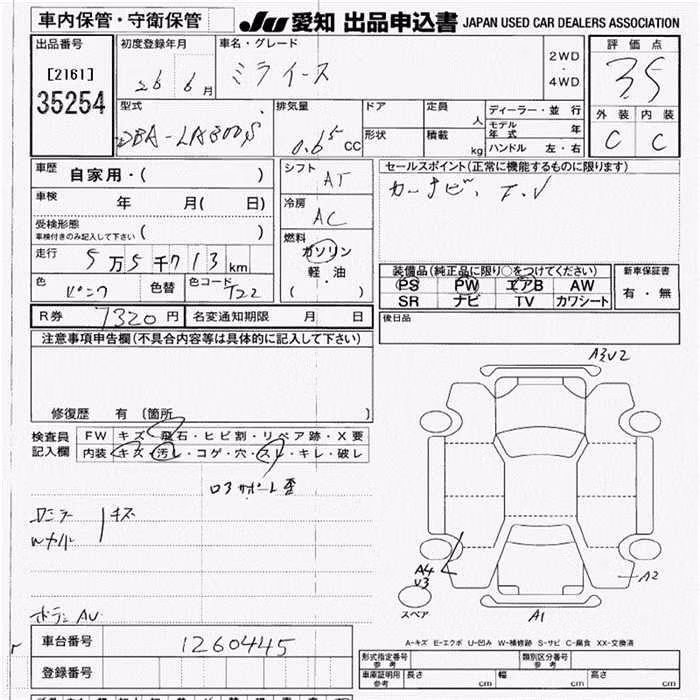 車内保管・守衛保管
JU 愛知 出品申込書 JAPAN USED CAR DEALERS ASSOCIATION
出品番号
[2161]
35254
初度登録年月
26 6月
車名・グレード
ミライース
2WD
・
4WD
評価点
35
外装 内装
C C
型式
DBA-LA300S
排気量
0.65 CC
ドア
形状
定員 人
積載 kg
ディーラー・並行
モデル年式 年
ハンドル 左・右
車歴
自家用・( )
車検 年 月( 日)
受検形態
車検付きのみ記入して下さい ( )
走行 5万5千713km
色 ピンク 色替 色コード T22
シフト AT
冷房 AC
燃料
ガソリン
軽・油
( )
セールスポイント(正常に機能するものに限ります)
カーナビ、T.V
装備品(純正品に限り○をつけてください)
PS PW エアB AW
SR ナビ TV カワシート
新車保証書
有・無
後日品
R券 7320円 名変通知期限 月 日
注意事項申告欄(不具合内容等は具体的に記入して下さい)
修復歴 有 (箇所 )
検査員
記入欄
FW キズ・飛石・ヒビ割・リペア跡・X要
内装 キズ・汚レ・コゲ・穴・スレ・キレ・破レ
ロアサポート歪
キズ
AV
A3V2
A4
V3
スペア
A2
A1
車台番号 1260445
登録番号
A-キズ E-エクボ U-凹み W-補修跡 S-サビ C-腐食 XX-交換済
形式指定番号
参考
類別区分番号
参考
車庫証明用
参考
長さ cm 幅 cm 高さ cm